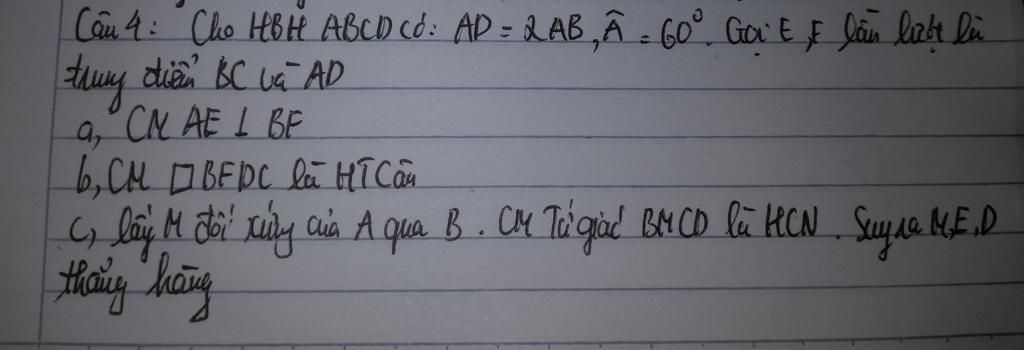 Câu 4: Cho HBH ABCD có: AD = 2AB, Â = 60°. Gọi E, F lần lượt là
trung điểm BC và AD
a, CM AE ⊥ BF
b, CM □ BFDC là HT Cân
c, lấy M đối xứng của A qua B. CM Tứ giác BMCD là HCN. Suy ra M,E,D
thẳng hàng